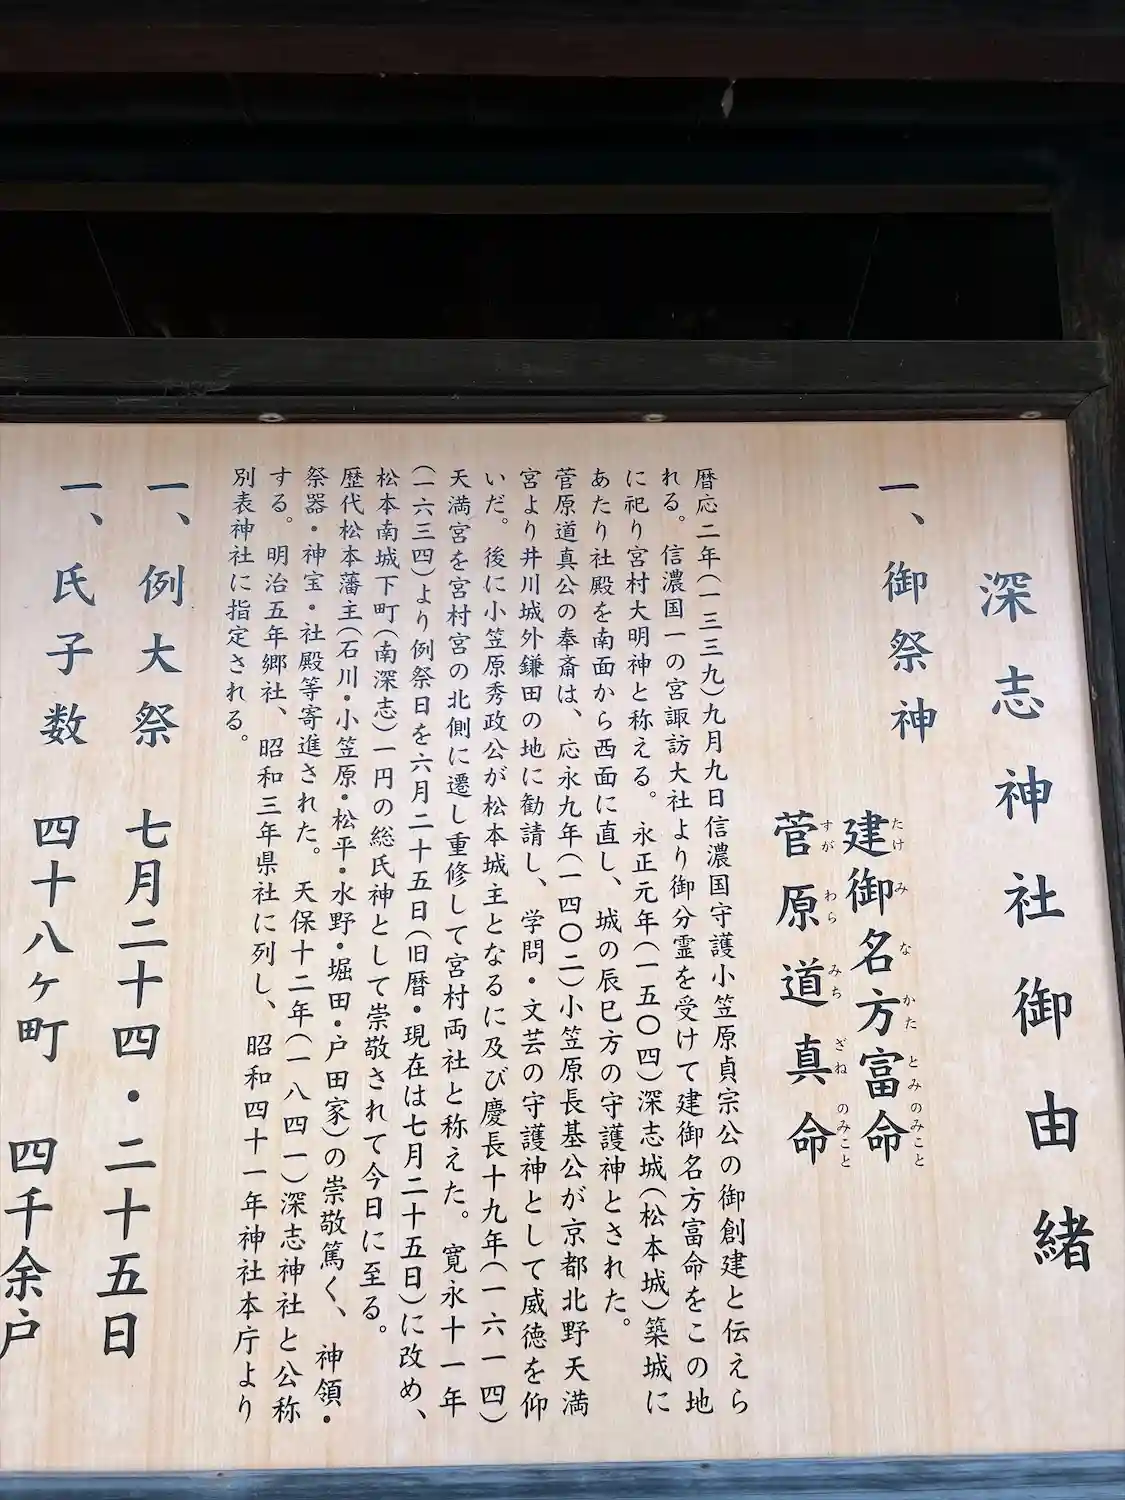 深志神社御由緒
一、御祭神
建御名方富命
たけみなかたとみのみこと
菅原道真命
すがわらみちざねのみこと
暦応二年(一三三九)九月九日信濃国守護小笠原貞宗公の御創建と伝えら
れる。信濃国一の宮諏訪大社より御分霊を受けて建御名方富命をこの地
に祀り宮村大明神と称える。永正元年(一五〇四)深志城(松本城)築城に
あたり社殿を南面から西面に直し、城の辰巳方の守護神とされた。
菅原道真公の奉斎は、応永九年(一四〇二)小笠原長基公が京都北野天満
宮より井川城外鎌田の地に勧請し、学問・文芸の守護神として威徳を仰
いだ。後に小笠原秀政公が松本城主となるに及び慶長十九年(一六一四)
天満宮を宮村宮の北側に遷し重修して宮村両社と称えた。寛永十一年
(一六三四)より例祭日を六月二十五日(旧暦・現在は七月二十五日)に改め、
松本南城下町(南深志)一円の総氏神として崇敬されて今日に至る。
歴代松本藩主(石川・小笠原・松平・水野・堀田・戸田家)の崇敬篤く、神領・
祭器・神宝・社殿等寄進された。天保十二年(一八四一)深志神社と公称
する。明治五年郷社、昭和三年県社に列し、昭和四十一年神社本庁より
別表神社に指定される。
一、例大祭 七月二十四・二十五日
一、氏子数 四十八ヶ町 四千余戸